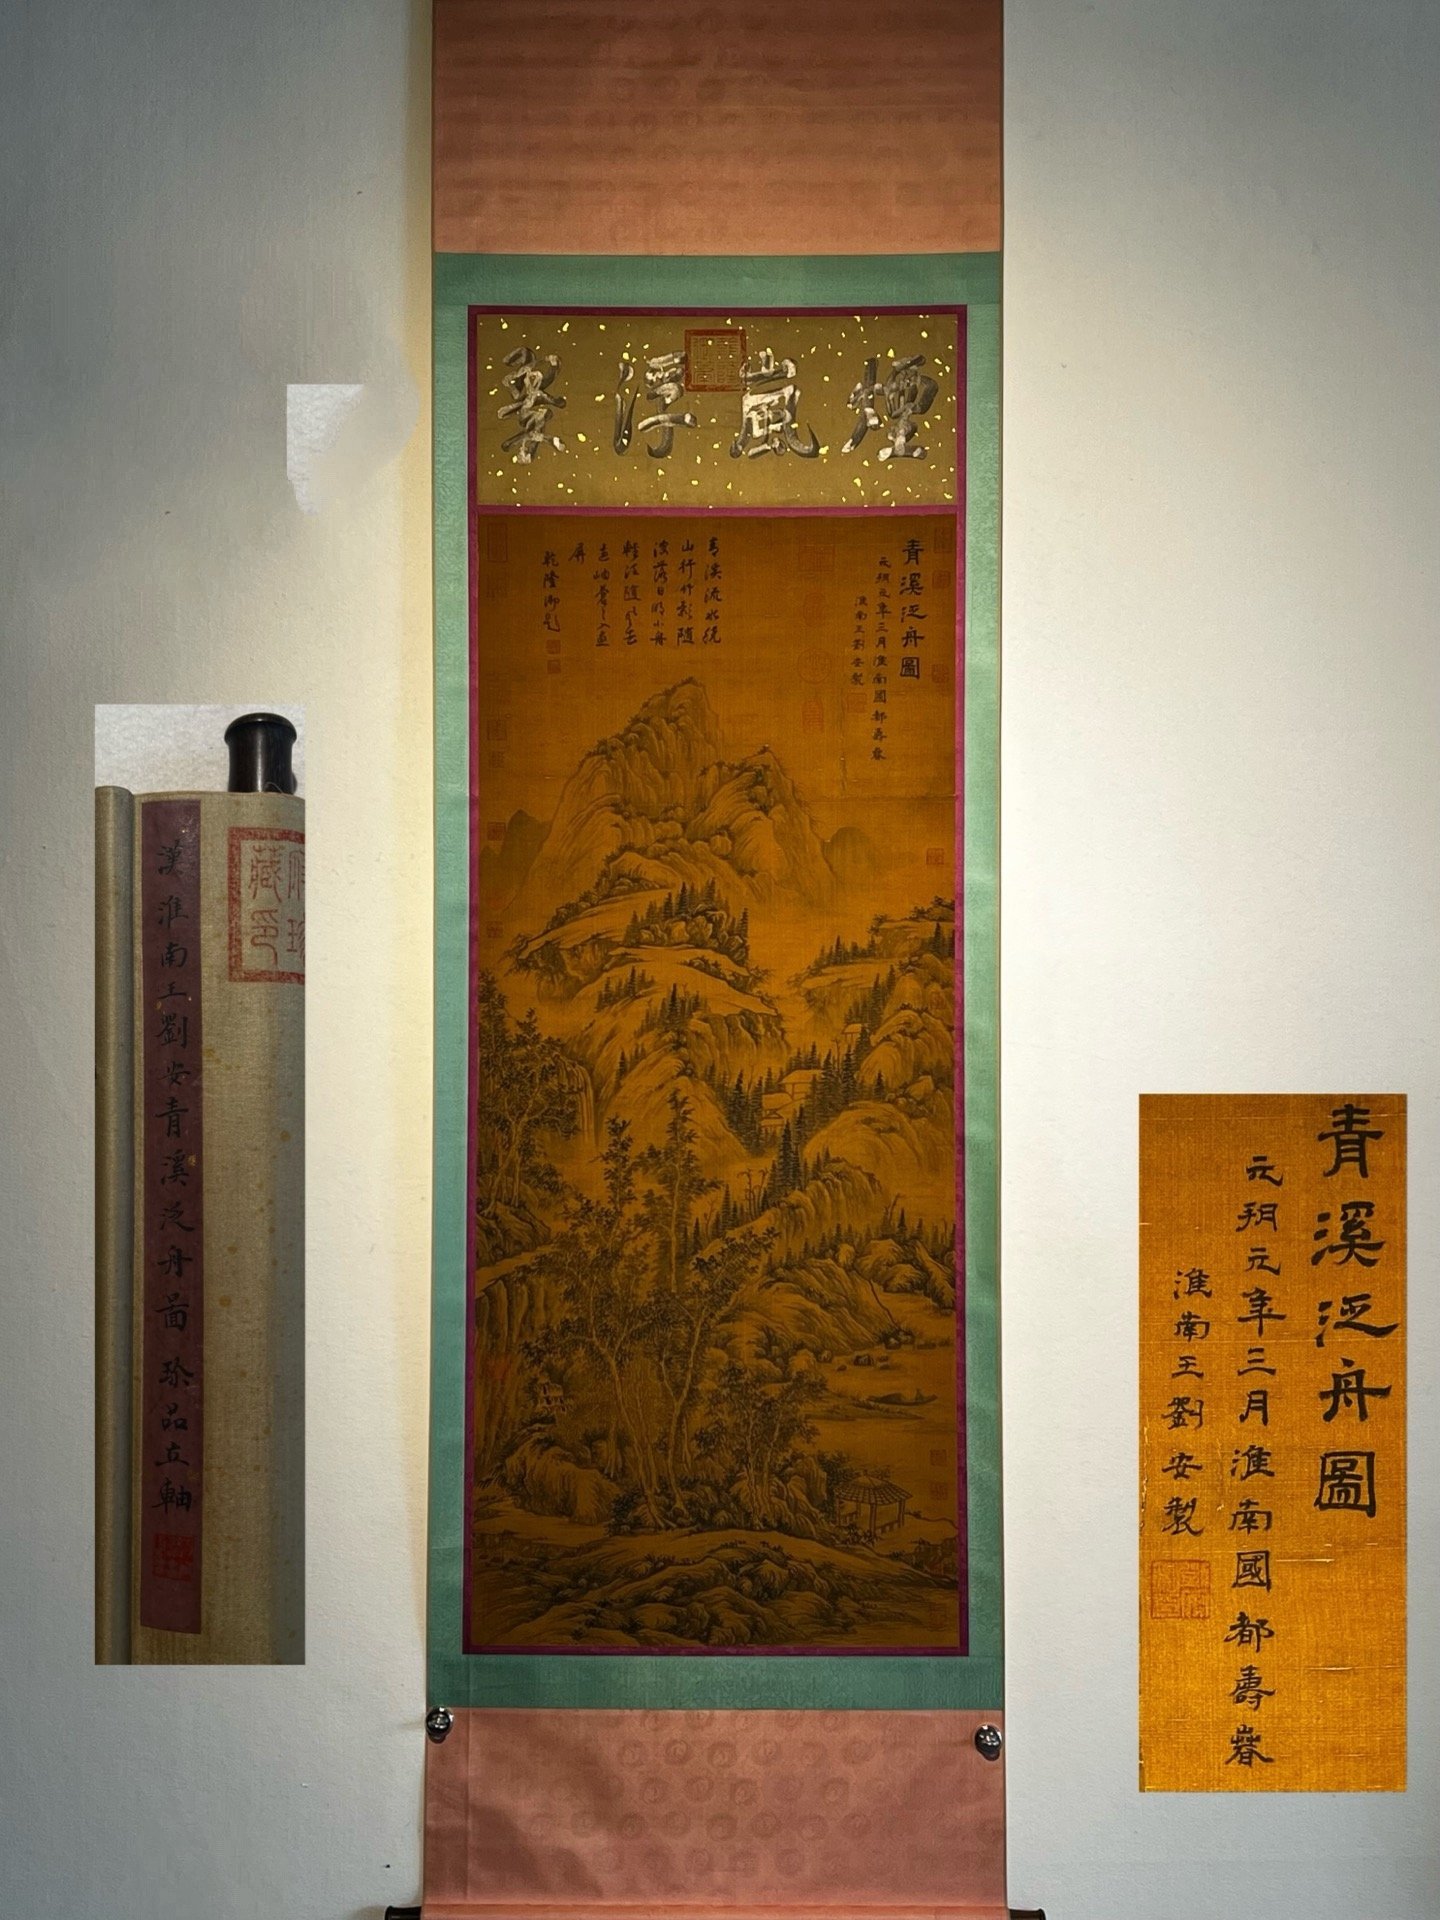 煙嵐浮翠
青溪泛舟圖
元朔元年三月淮南國都壽春
淮南王劉安製
青溪流水繞
山行竹影隨
波落日明小舟
輕泛隨風去
遠岫蒼々入畫
屏
乾隆御題
漢淮南王劉安青溪泛舟啚珍品立軸
府珍
藏印
青溪泛舟圖
元朔元年三月淮南國都壽春
淮南王劉安製